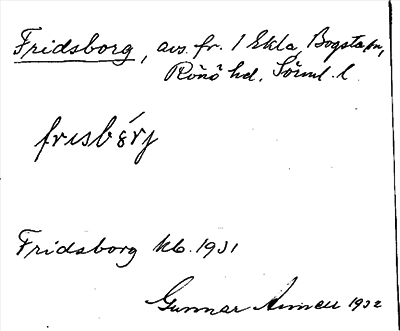 Fridsborg, avs. fr. 1 Ekla, Bogsta sn,
Rönö hd. Sörml. l.
frisbórj
Fridsborg kb. 1931
Gunnar Arnell 1932